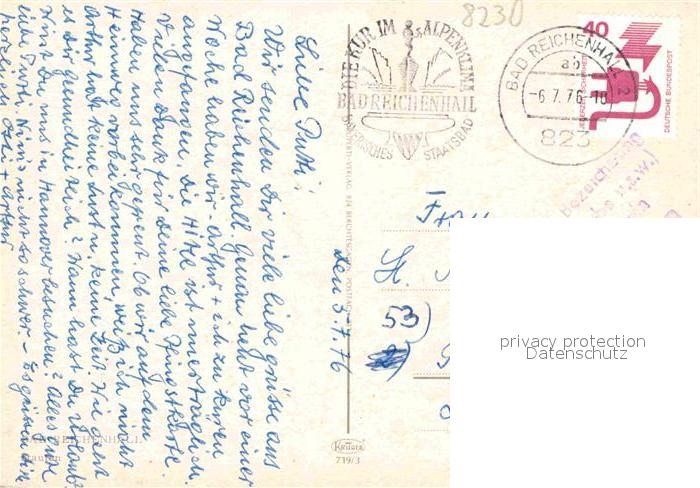 8230
40
DIE KUR IM ALPENKLIMA
BAD REICHENHALL
BAYERISCHES STAATSBAD
BAD REICHENHALL 2
ab
-6.7.76-18
823
JEDERZEIT SICHERHEIT
DEUTSCHE BUNDESPOST
Bezeichnung
u.s.w.)
den 5.7.76
Liebe Putti!
Wir senden Dir viele liebe Grüsse aus
Bad Reichenhall. Genau heute vor einer
Woche haben wir - Arthur + ich zu kuren
angefangen. Die Hitze ist unerträglich.
Viele Dank für Deine liebe Pfingstkarte.
Haben uns sehr gefreut. Ob wir auf dem
Heimweg vorbeikommen, weiß ich nicht
Arthur hat keine Lust u. keine Zeit. Wie geht
es der gesundheitlich? Wann hast Du Urlaub?
Wirst Du uns in Hannover besuchen? Alles Gute
liebe Putti. Nimm's nicht so schwer - Es grüssen Dich
herzlich + Arthur
Frau
H.
53)
BAD REICHENHALL
Staufen
KRÜGER
719/3
privacy protection
Datenschutz